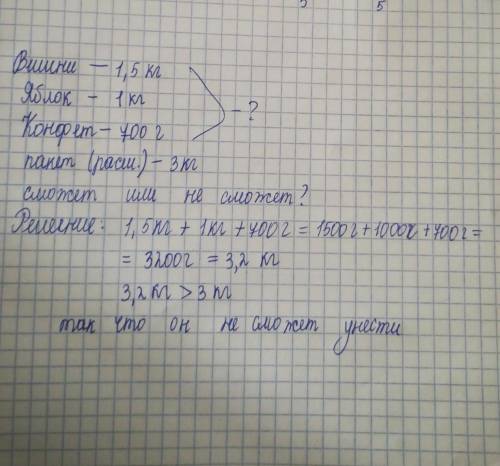 Вишни – 1,5 кг
Яблок – 1 кг
– ?
Конфет – 700 г
пакет (расш.) – 3 кг
сможет или не сможет?
Решение: 1,5 кг + 1 кг + 700 г = 1500 г + 1000 г + 700 г =
= 3200 г = 3,2 кг
3,2 кг > 3 кг
так что он не сможет унести